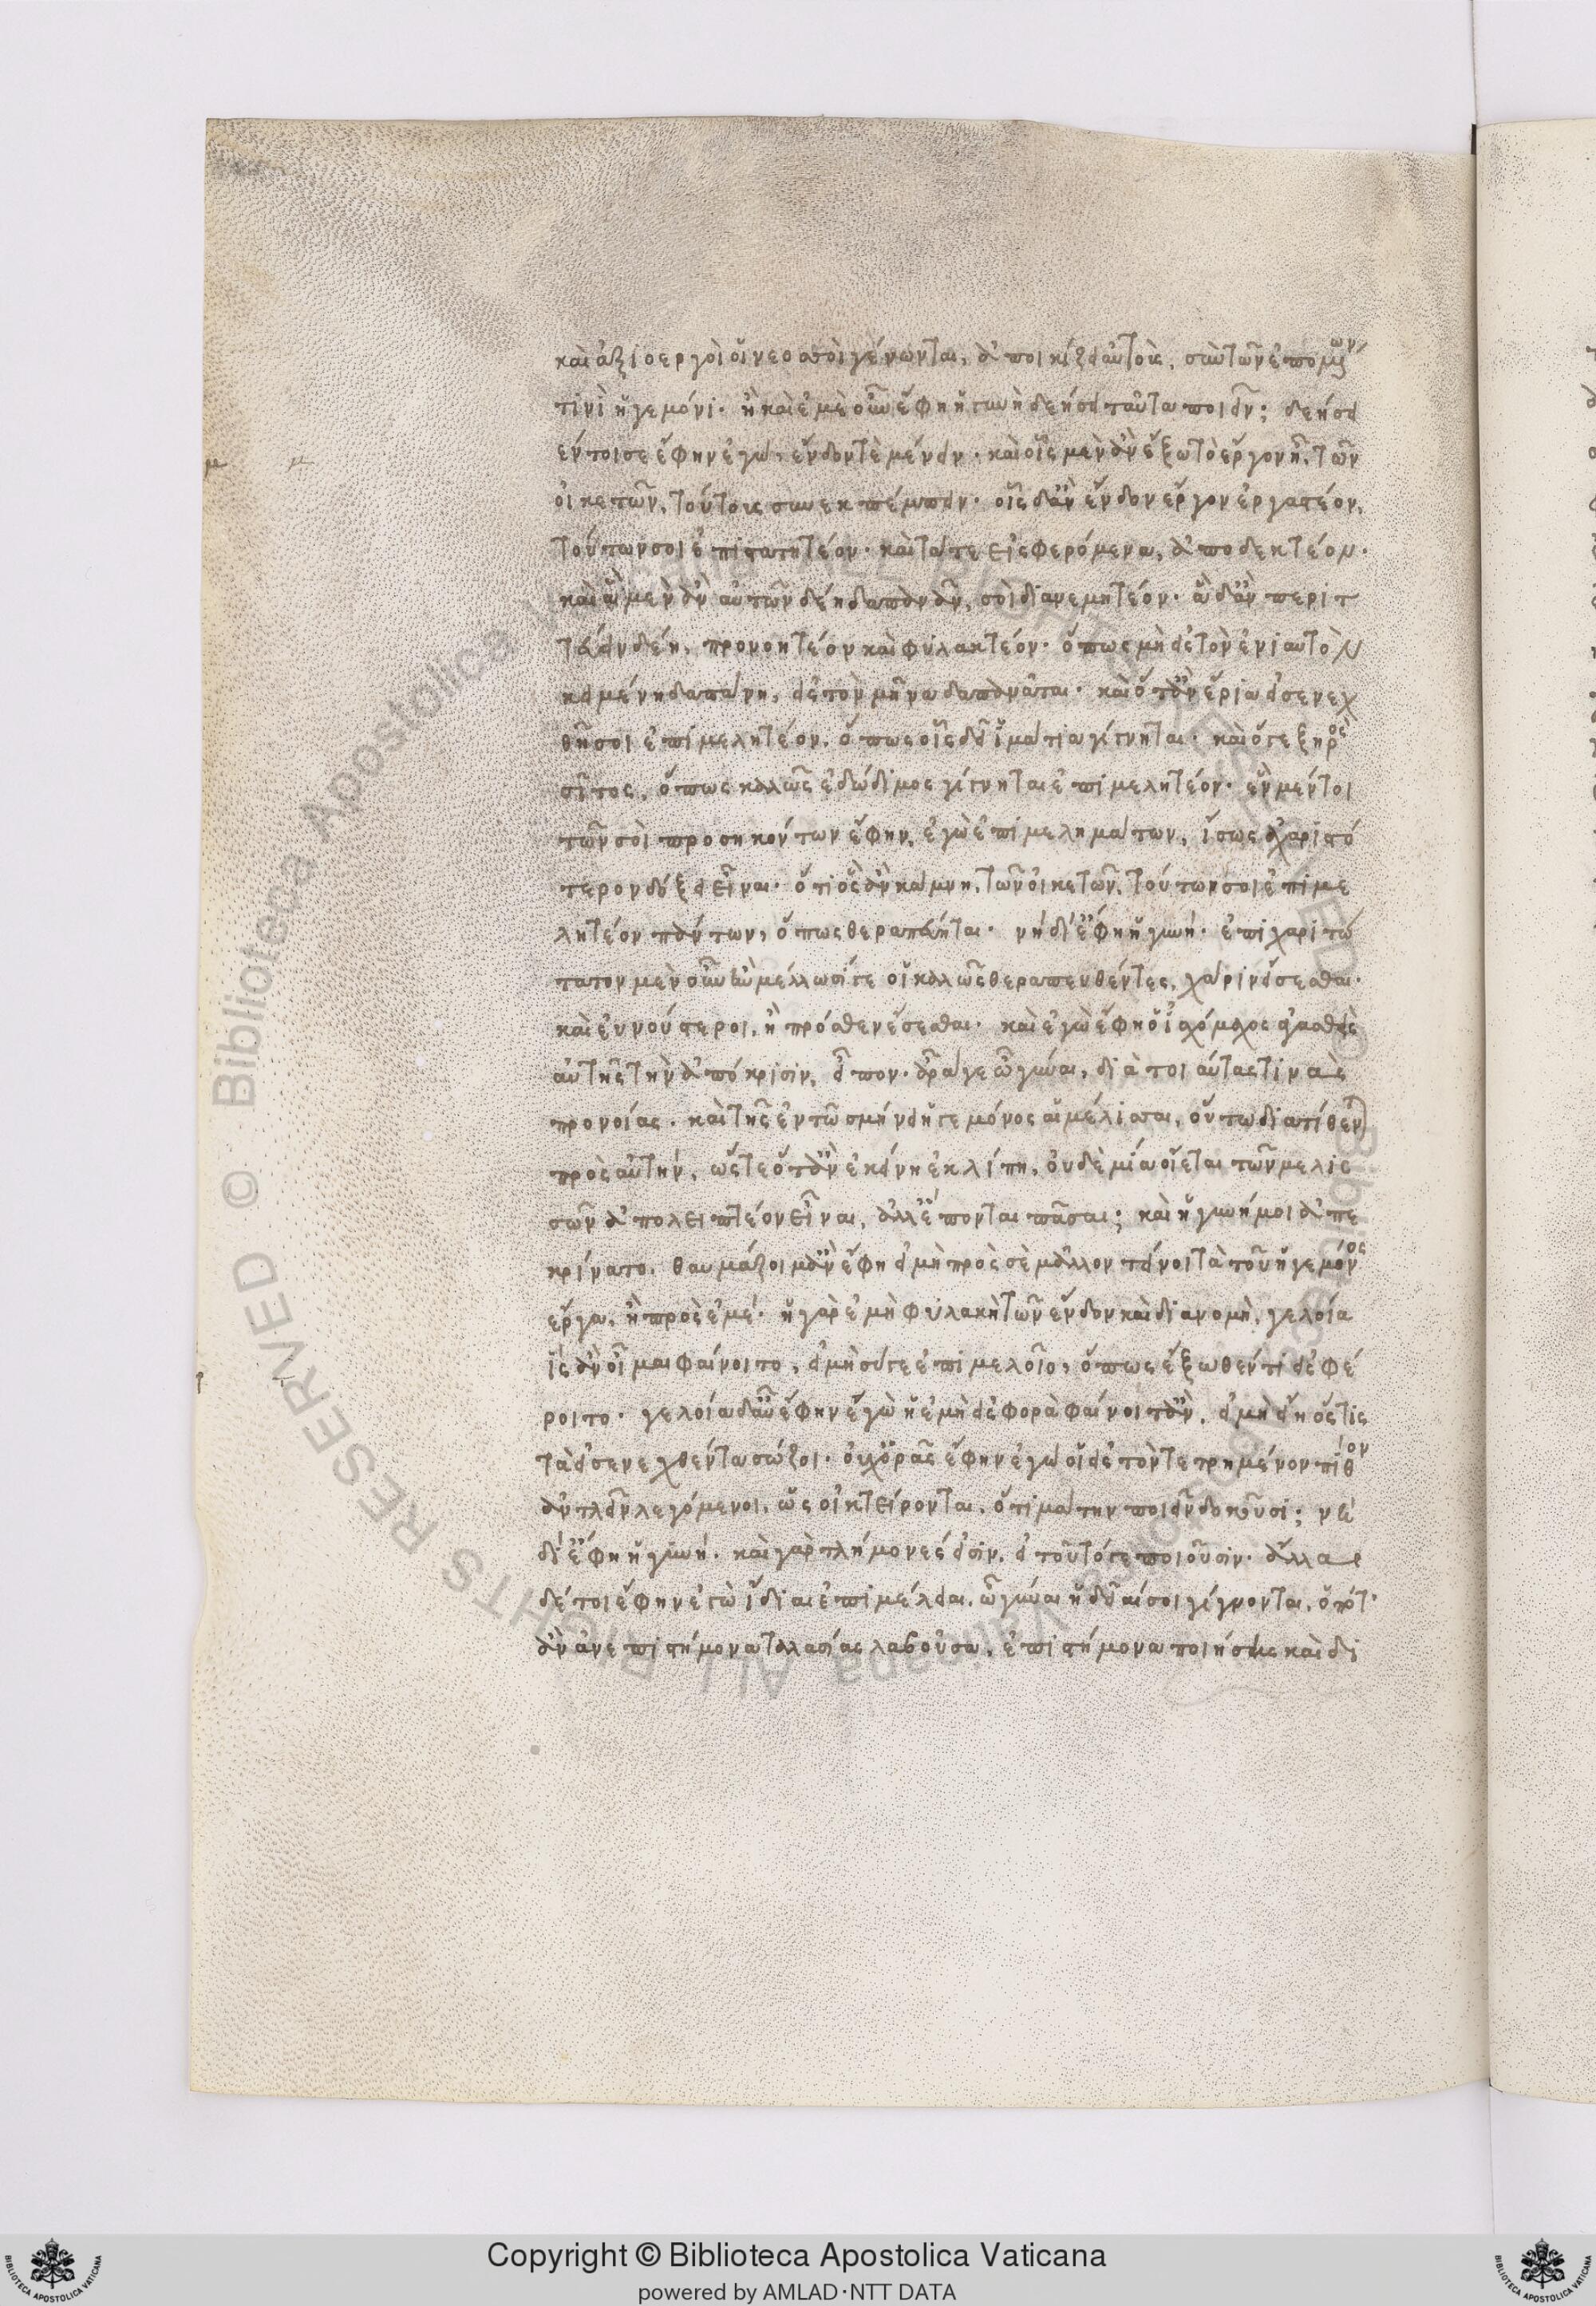 καὶ ἀξιοεργοὶ οἱ νεοσσοὶ γένωνται, ἀποικίζει αὐτοὺς, σὺν τῶν ἐπομένων
τινὶ ἡγεμόνι. ἦ καὶ ἐμὲ οὖν ἔφη ἡ γυνὴ δεήσει ταῦτα ποιεῖν; δεήσει
μέντοι σε ἔφην ἐγώ, ἔνδον τὲ μένειν. καὶ οἷς μὲν ἂν ἔξω τὸ ἔργον ᾖ, τῶν
οἰκετῶν, τούτοις συνεκπέμπειν. οἷς δ' ἂν ἔνδον ἔργον ἐργαστέον,
τούτων σοι ἐπιστατητέον. καὶ τά τε εἰσφερόμενα, ἀποδεκτέον.
καὶ ἃ μὲν ἂν αὐτῶν δέη δαπανᾶν, σοὶ διανεμητέον. ἃ δ' ἂν περιτ
τεύειν δέη, προνοητέον καὶ φυλακτέον. ὅπως μὴ εἰς τὸν ἐνιαυτὸν
κειμένη δαπάνη, εἰς τὸν μῆνα δαπανᾶται. καὶ ὅταν ἔρια εἰσενεχ
θῆ σοι ἐπιμελητέον, ὅπως οἷς δεῖ ἱμάτια γίγνηται. καὶ ὅγε ξηρὸς
σῖτος, ὅπως καλῶς ἐδώδιμος γίγνηται ἐπιμελητέον. ἓν μέντοι
τῶν σοὶ προσηκόντων ἔφην, ἐγὼ ἐπιμελημάτων, ἴσως ἀχαριστό
τερον δόξει εἶναι. ὅτι ὃς ἂν κάμνη, τῶν οἰκετῶν, τούτων σοι ἐπιμε
λητέον πάντων, ὅπως θεραπεύηται. νὴ δί' ἔφη ἡ γυνή. ἐπιχαριτώ
τατον μὲν οὖν ἂν μέλλωσί γε οἱ καλῶς θεραπευθέντες, χάριν εἴσεσθαι.
καὶ εὐνούστεροι, ἢ πρόσθεν ἔσεσθαι. καὶ ἐγὼ ἔφη ὁ ἰσχόμαχος ἀγασθεὶς
αὐτῆς τὴν ἀπόκρισιν, εἶπον. ἆρά γε ὦ γύναι, διὰ τοιαύτας τινὰς
προνοίας. καὶ τῆς ἐν τῷ σμήνει ἡγεμόνος αἱ μέλισσαι, οὕτω διατίθενται
πρὸς αὐτήν, ὥστε ὅταν ἐκείνη ἐκλίπη, οὐδὲ μία οἴεται τῶν μελισ
σῶν ἀπολειπτέον εἶναι, ἀλλ' ἕπονται πᾶσαι; καὶ ἡ γυνή μοι ἀπε
κρίνατο. θαυμάζοιμ' ἂν ἔφη εἰ μὴ πρὸς σὲ μᾶλλον τείνοι τὰ τοῦ ἡγεμόνος
ἔργα, ἢ πρὸς ἐμέ. ἡ γὰρ ἐμὴ φυλακὴ τῶν ἔνδον καὶ διανομὴ, γελοία
τις ἂν οἶμαι φαίνοιτο, εἰ μὴ σύγε ἐπιμελοῖο, ὅπως ἔξωθέν τι εἰσφέ
ροιτο. γελοία δ' αὖ ἔφην ἐγὼ ἡ ἐμὴ εἰσφορὰ φαίνοιτ' ἂν, εἰ μὴ εἴη ὅστις
τὰ εἰσενεχθέντα σώζοι. οὐχ ὁρᾶς ἔφην ἐγώ οἱ εἰς τὸν τετρημένον πίθον
ἀντλεῖν λεγόμενοι, ὡς οἰκτείρονται, ὅτι μάτην πονεῖν δοκοῦσι; νὴ
δί' ἔφη ἡ γυνή. καὶ γὰρ τλήμονές εἰσιν, εἰ τοῦτό γε ποιοῦσιν. ἄλλαι
δέ τοι ἔφην ἐγὼ ἴδιαι ἐπιμέλειαι, ὦ γύναι ἡδεῖαί σοι γίγνονται, ὁπότ'
ἂν ἀνεπιστήμονα ταλασίας λαβοῦσα, ἐπιστήμονα ποιήσῃς καὶ δι